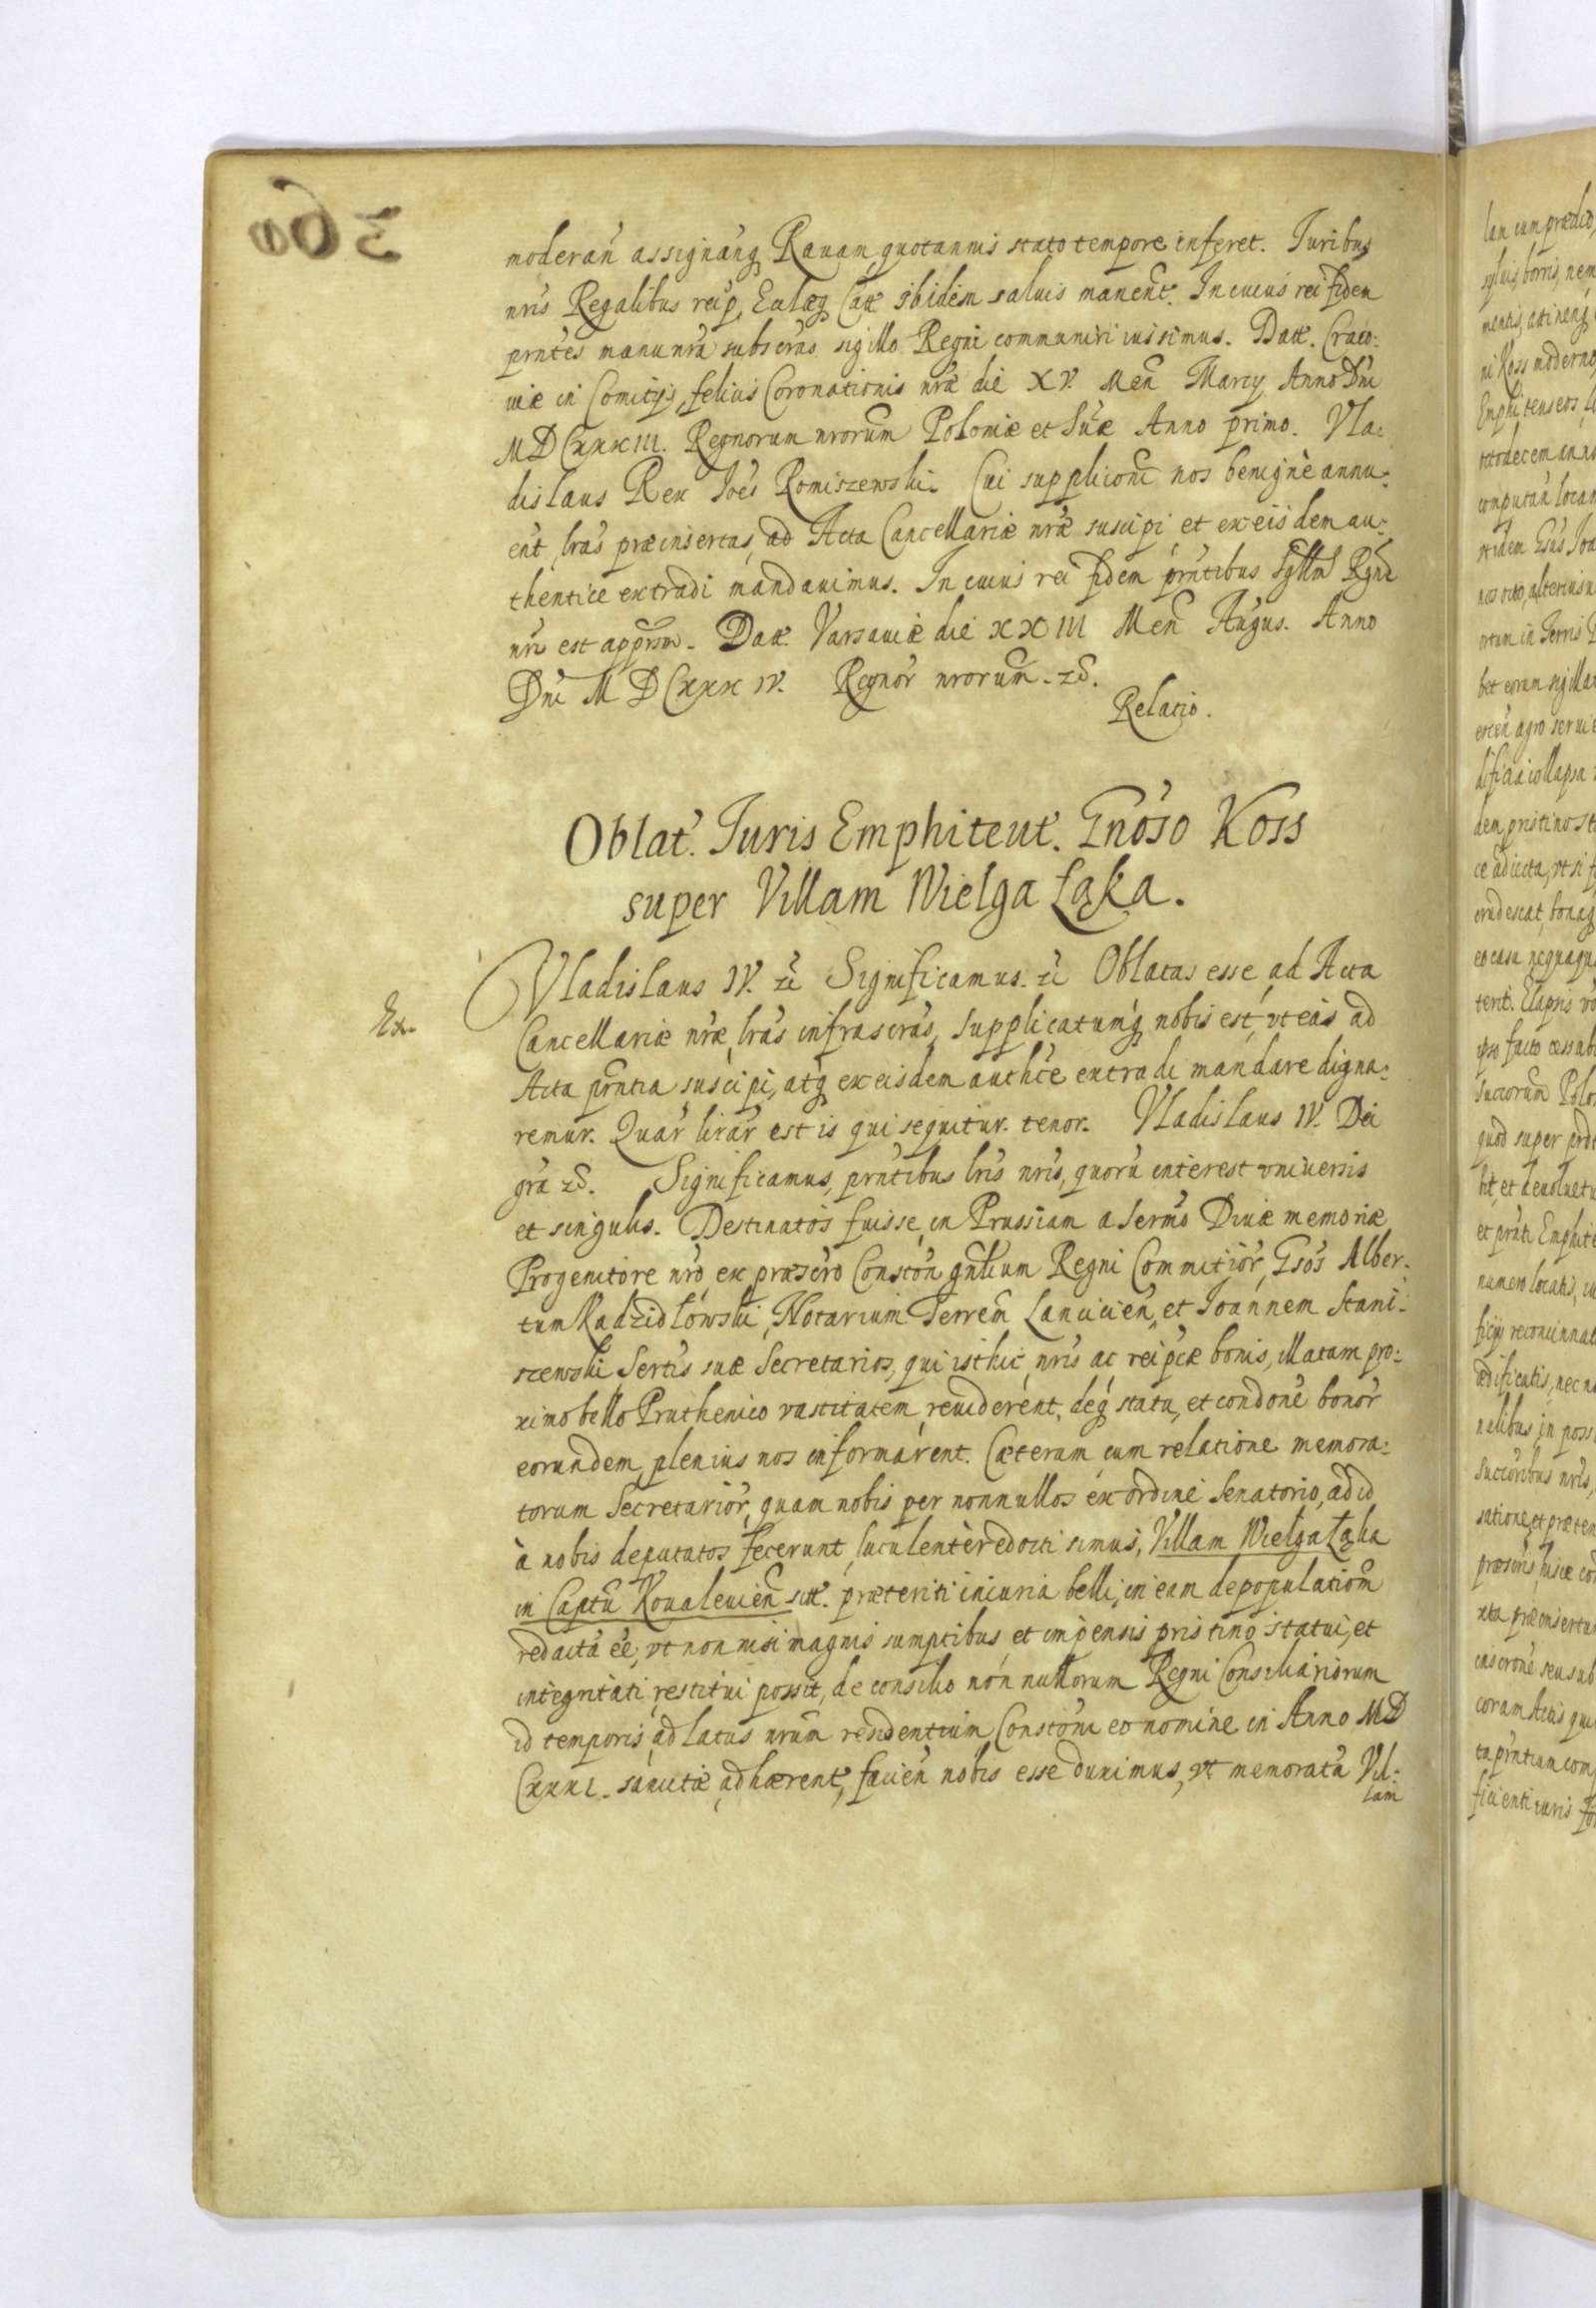 360
moderań assignanq Rauam quotannis stato tempore inferet. Juribus
nris Regalibus reip, Ecclæq Catt ibidem saluis manent. In cuius rei fidem
prntes manu nra subscras sigillo Regni communiri iussimus. Datt. Craco:
uiæ in Comitijs felicis Coronationis nræ die XV. Men Marcij Anno Dni
MDCXXXIII. Regnorum nrorum Poloniæ et Suæ Anno primo. Vla:
dislaus Rex Joes Romiszewski. Cui suppliconi nos benigne annu:
ent lras præinsertas ad Acta Cancellariæ nræ suscipi et ex eisdem au:
thentice extradi mandauimus. In cuius rei fidem prntibus Sgllm Rgni
nri est appssm. Datt. Varsauiæ die XXIII Men Augus. Anno
Dni MDCXXXIV. Regnor nrorum. zc.
Relatio.
Oblat. Juris Emphiteut. Gnoso Koss
super Villam Wielga Łąka.
Ex.
Vladislaus IV. zc Significamus. zc Oblatas esse ad Acta
Cancellariæ nræ lras infrascras, supplicatumq nobis est, vt eas ad
Acta prntia suscipi, atq ex eisdem authce extradi mandare digna:
remur. Quar lrar est is qui sequitur tenor. Vladislaus IV. Dei
gra zc. Significamus, prntibus lris nris, quoru interest vniuersis
et singulis. Destinatos fuisse in Prussiam a Sermo Diuæ memoriæ
Progenitore nro ex præscro Conston gnlium Regni Comitior, Gsos Alber:
tum Radzidłowski, Notarium Terrem Lancicien, et Joannem Stani:
szewski Sertis suæ Secretarios, qui isthic nris ac reipcæ bonis, illatam pro:
ximo bello Pruthenico vastitatem reuiderent, deq statu, et condone bonor
eorundem plenius nos informarent. Cæterum cum relatione memora:
torum Secretarior, quam nobis per nonnullos ex ordine Senatorio, ad id
à nobis deputatos fecerunt, luculenter edocti simus, Villam Wielga Łąka
in Captu Koualeuien sitt. præteriti iniuria belli, in eam depopulationem
redacta ee, vt non nisi magnis sumptibus et impensis pristino statui, et
integritati restitui possit, de consilio non nullorum Regni Consiliariorum
id temporis ad latus nrum residentium Constoni eo nomine in Anno MD
CXXXI. sancitæ adhærent, facien nobis esse duximus, vt memorata Vil:
lam